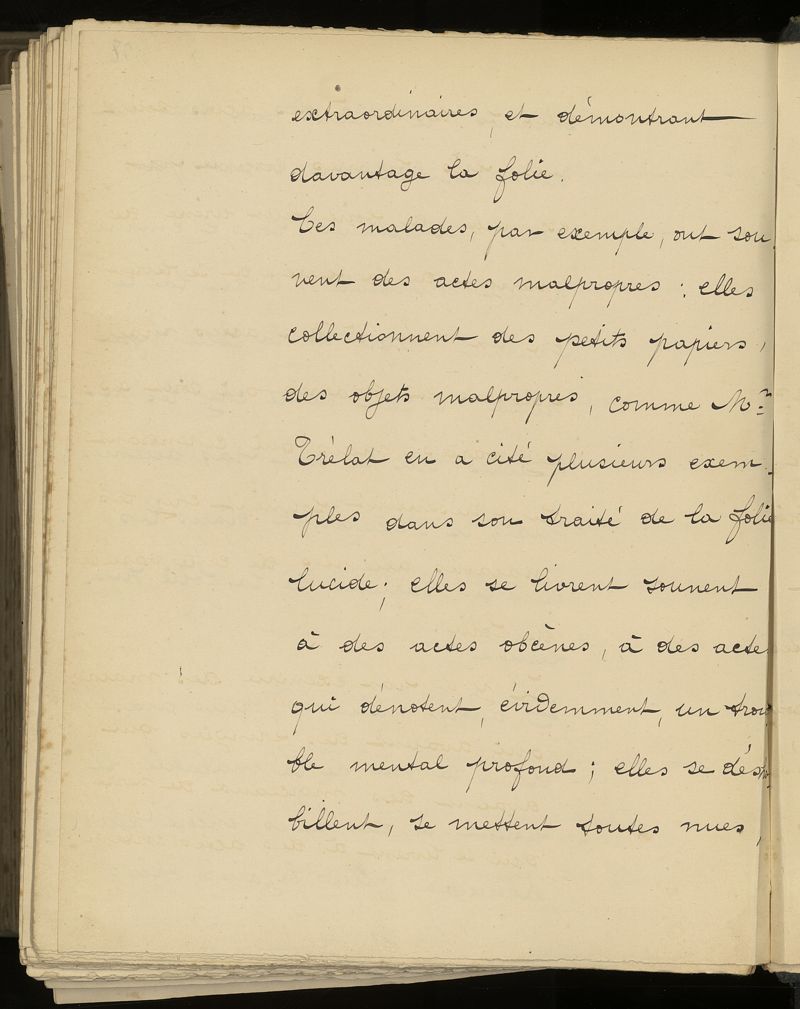 extraordinaires, et démontrant
davantage la folie.
Ces malades, par exemple, ont sou
vent des actes malpropres : elles
collectionnent des petits papiers,
des objets malpropres, comme Mr
Trélat en a cité plusieurs exem-
ples dans son traité de la folie
lucide ; elles se livrent souvent
à des actes obcènes, à des acte
qui dénotent, évidemment, un trou
ble mental profond ; elles se désha
billent, se mettent toutes nues,